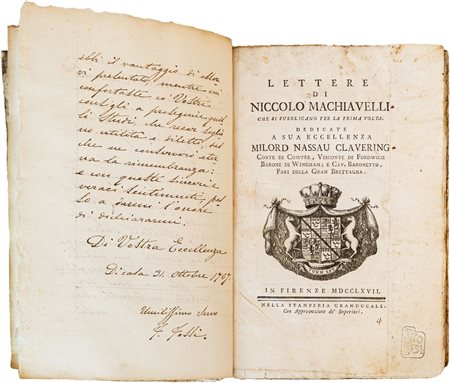 ebbi il vantaggio di esservi
presentato, mentre mi
confortaste co' Vostri
consigli a proseguire quegli
Studi, che recar soglio-
no utilità e diletto, del
che ne conservo eter-
na la rimembranza:
e con questi sinceri e
veraci sentimenti, pas-
so a darmi l'onore
di dichiararmi
Di Vostra Eccellenza
Di casa 31. Ottobre 1767
Umilissimo Servo
F. Fossi
LETTERE
DI
NICCOLO MACHIAVELLI
CHE SI PUBBLICANO PER LA PRIMA VOLTA.
DEDICATE
A SUA ECCELLENZA
MILORD NASSAU CLAVERING
CONTE DI COWPER, VISCONTE DI FORDWICH
BARONE DI WINGHAM, E CAV. BARONETTO,
PARI DELLA GRAN BRETTAGNA.
IN FIRENZE MDCCLXVII.
NELLA STAMPERIA GRANDUCALE.
Con Approvazione de' Superiori.